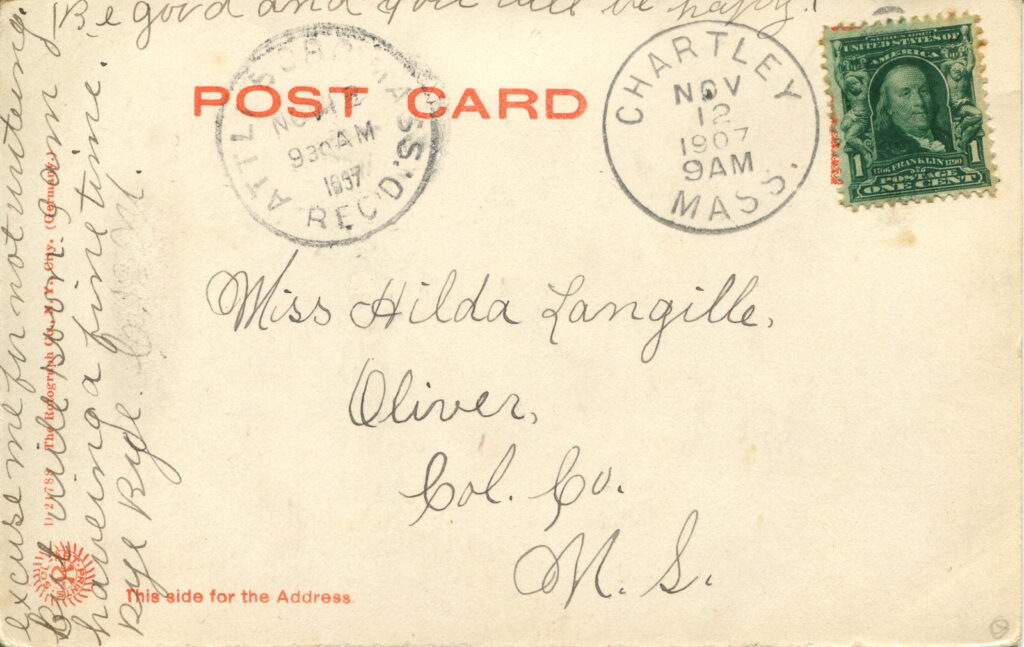 Be good and you will be happy!
POST CARD
ATTLEBORO, MASS.
NOV 12
930 AM
1907
REC'D.
CHARTLEY
NOV
12
1907
9AM
MASS.
SERIES 1902
UNITED STATES OF
AMERICA
1 1
1706 FRANKLIN 1790
POSTAGE
ONE CENT
Miss Hilda Langille,
Oliver,
Col. Co.
N. S.
This side for the Address.
excuse me for not writeing.
but will soon. I am
haveing a fine time.
Bye Bye.
The Rotograph Co., N. Y. City. (Germany.)